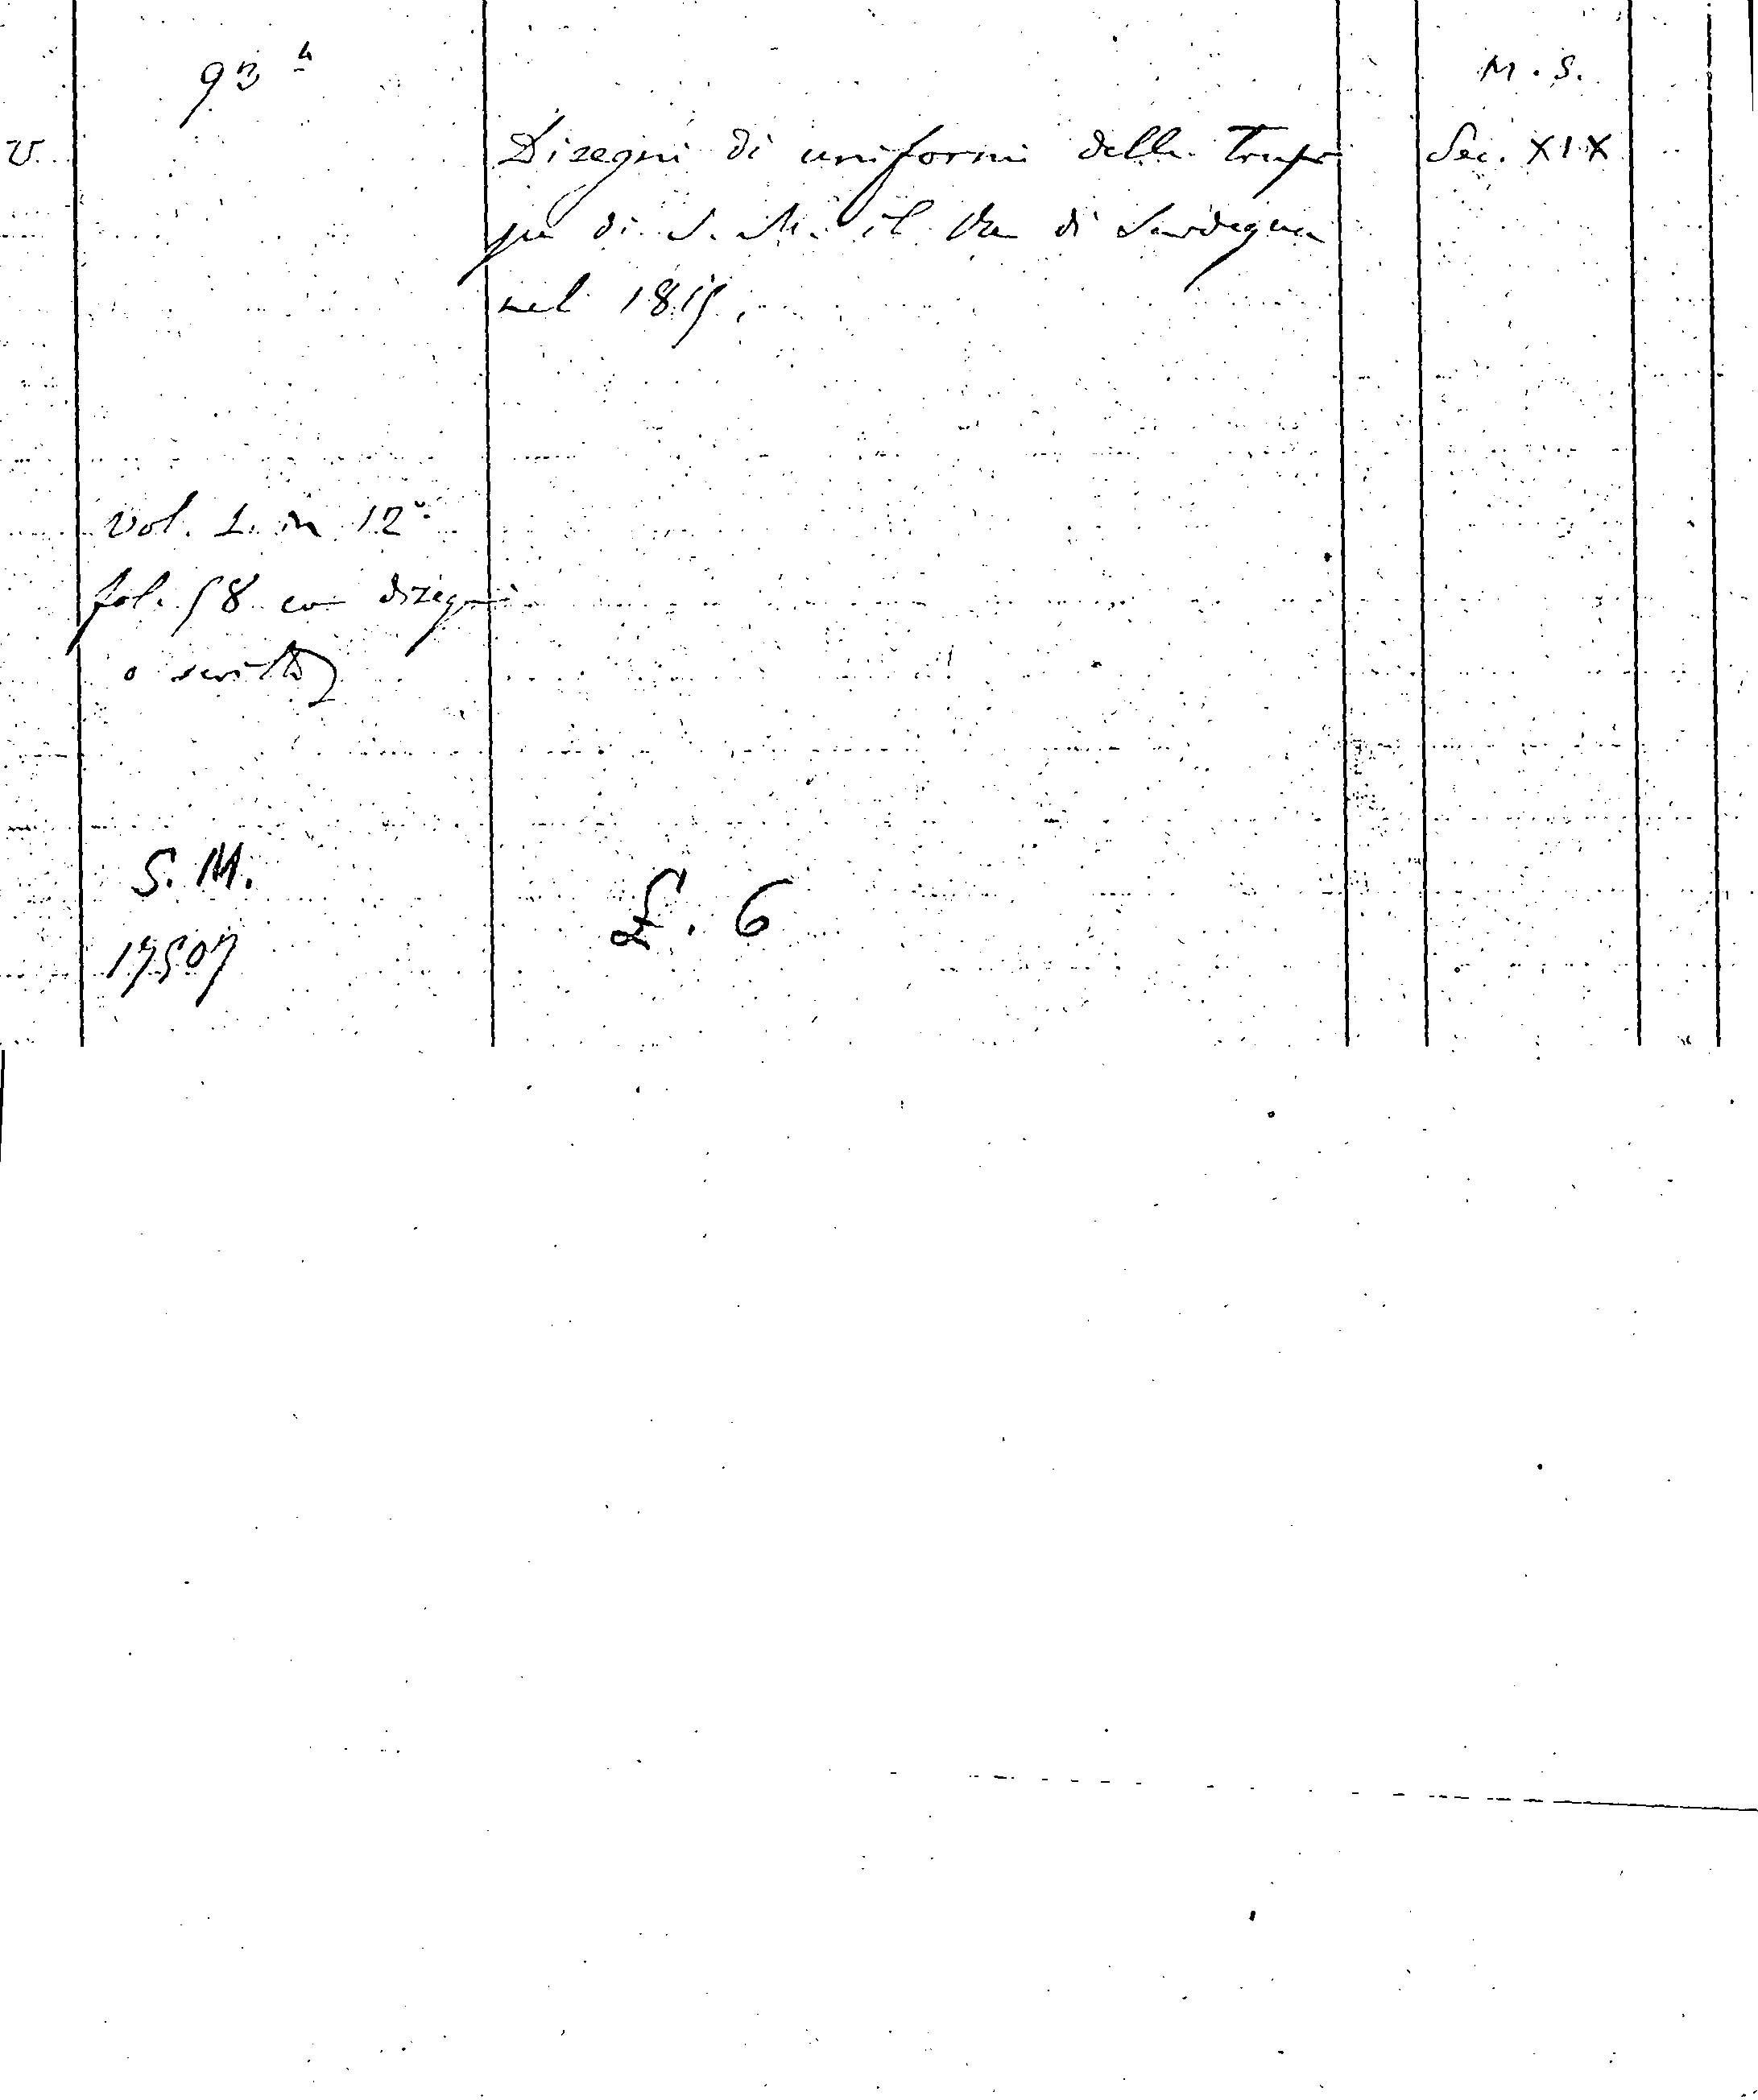 93 4
M. S.
V.
Disegni di uniformi delle Trup
pe di S. M. il Re di Sardegna
nel 1815.
Sec. XIX
Vol. 1. in 12°
fol. 58 con disegni
o scritto
S. M.
17507
£. 6